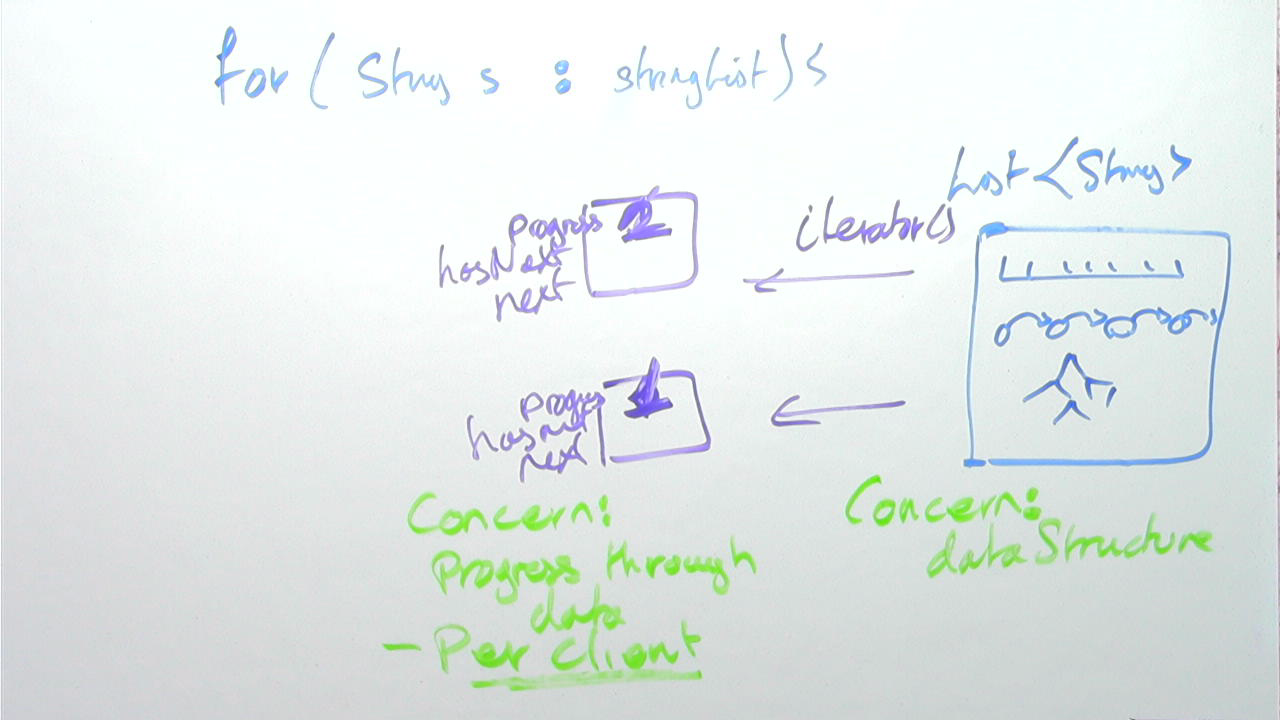 for ( String s : stringList) {
List <String>
iterator()
progress
hasNext
next
2
progress
hasNext
next
1
Concern:
Progress through
data
- Per client
Concern:
dataStructure